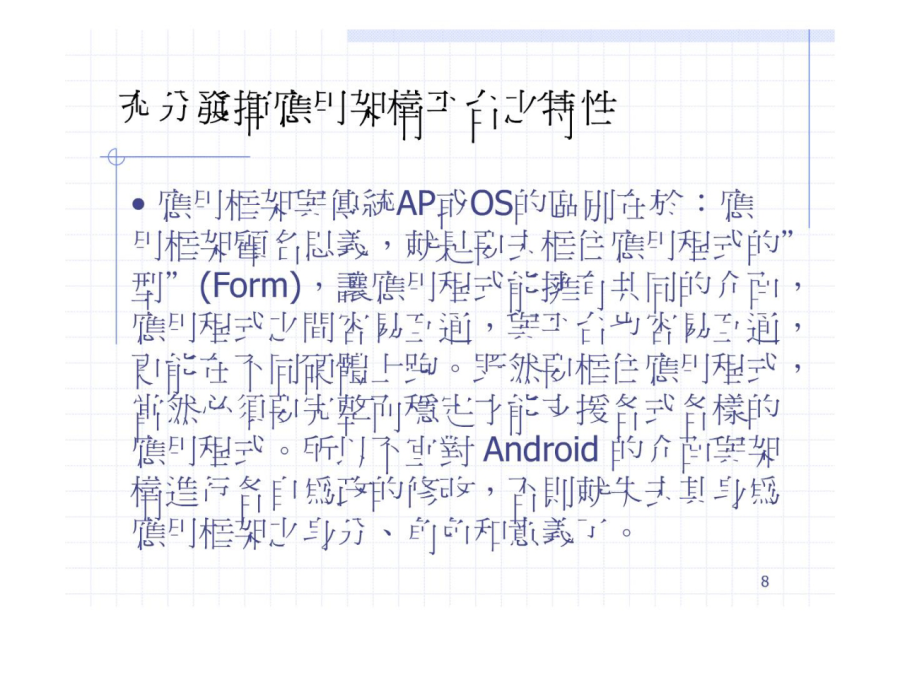 充分發揮應用架構平台之特性
• 應用框架與傳統AP或OS的區別在於：應
用框架顧名思義，就是要去框住應用程式的”
型”(Form)，讓應用程式能擁有共同的介面，
應用程式之間容易互通，與平台也容易互通，
更能在不同硬體上跑。既然要框住應用程式，
當然必須要完整而穩定才能支援各式各樣的
應用程式。所以不宜對 Android 的介面與架
構進行各自為政的修改，否則就失去其身為
應用框架之身分、和意義了。
8